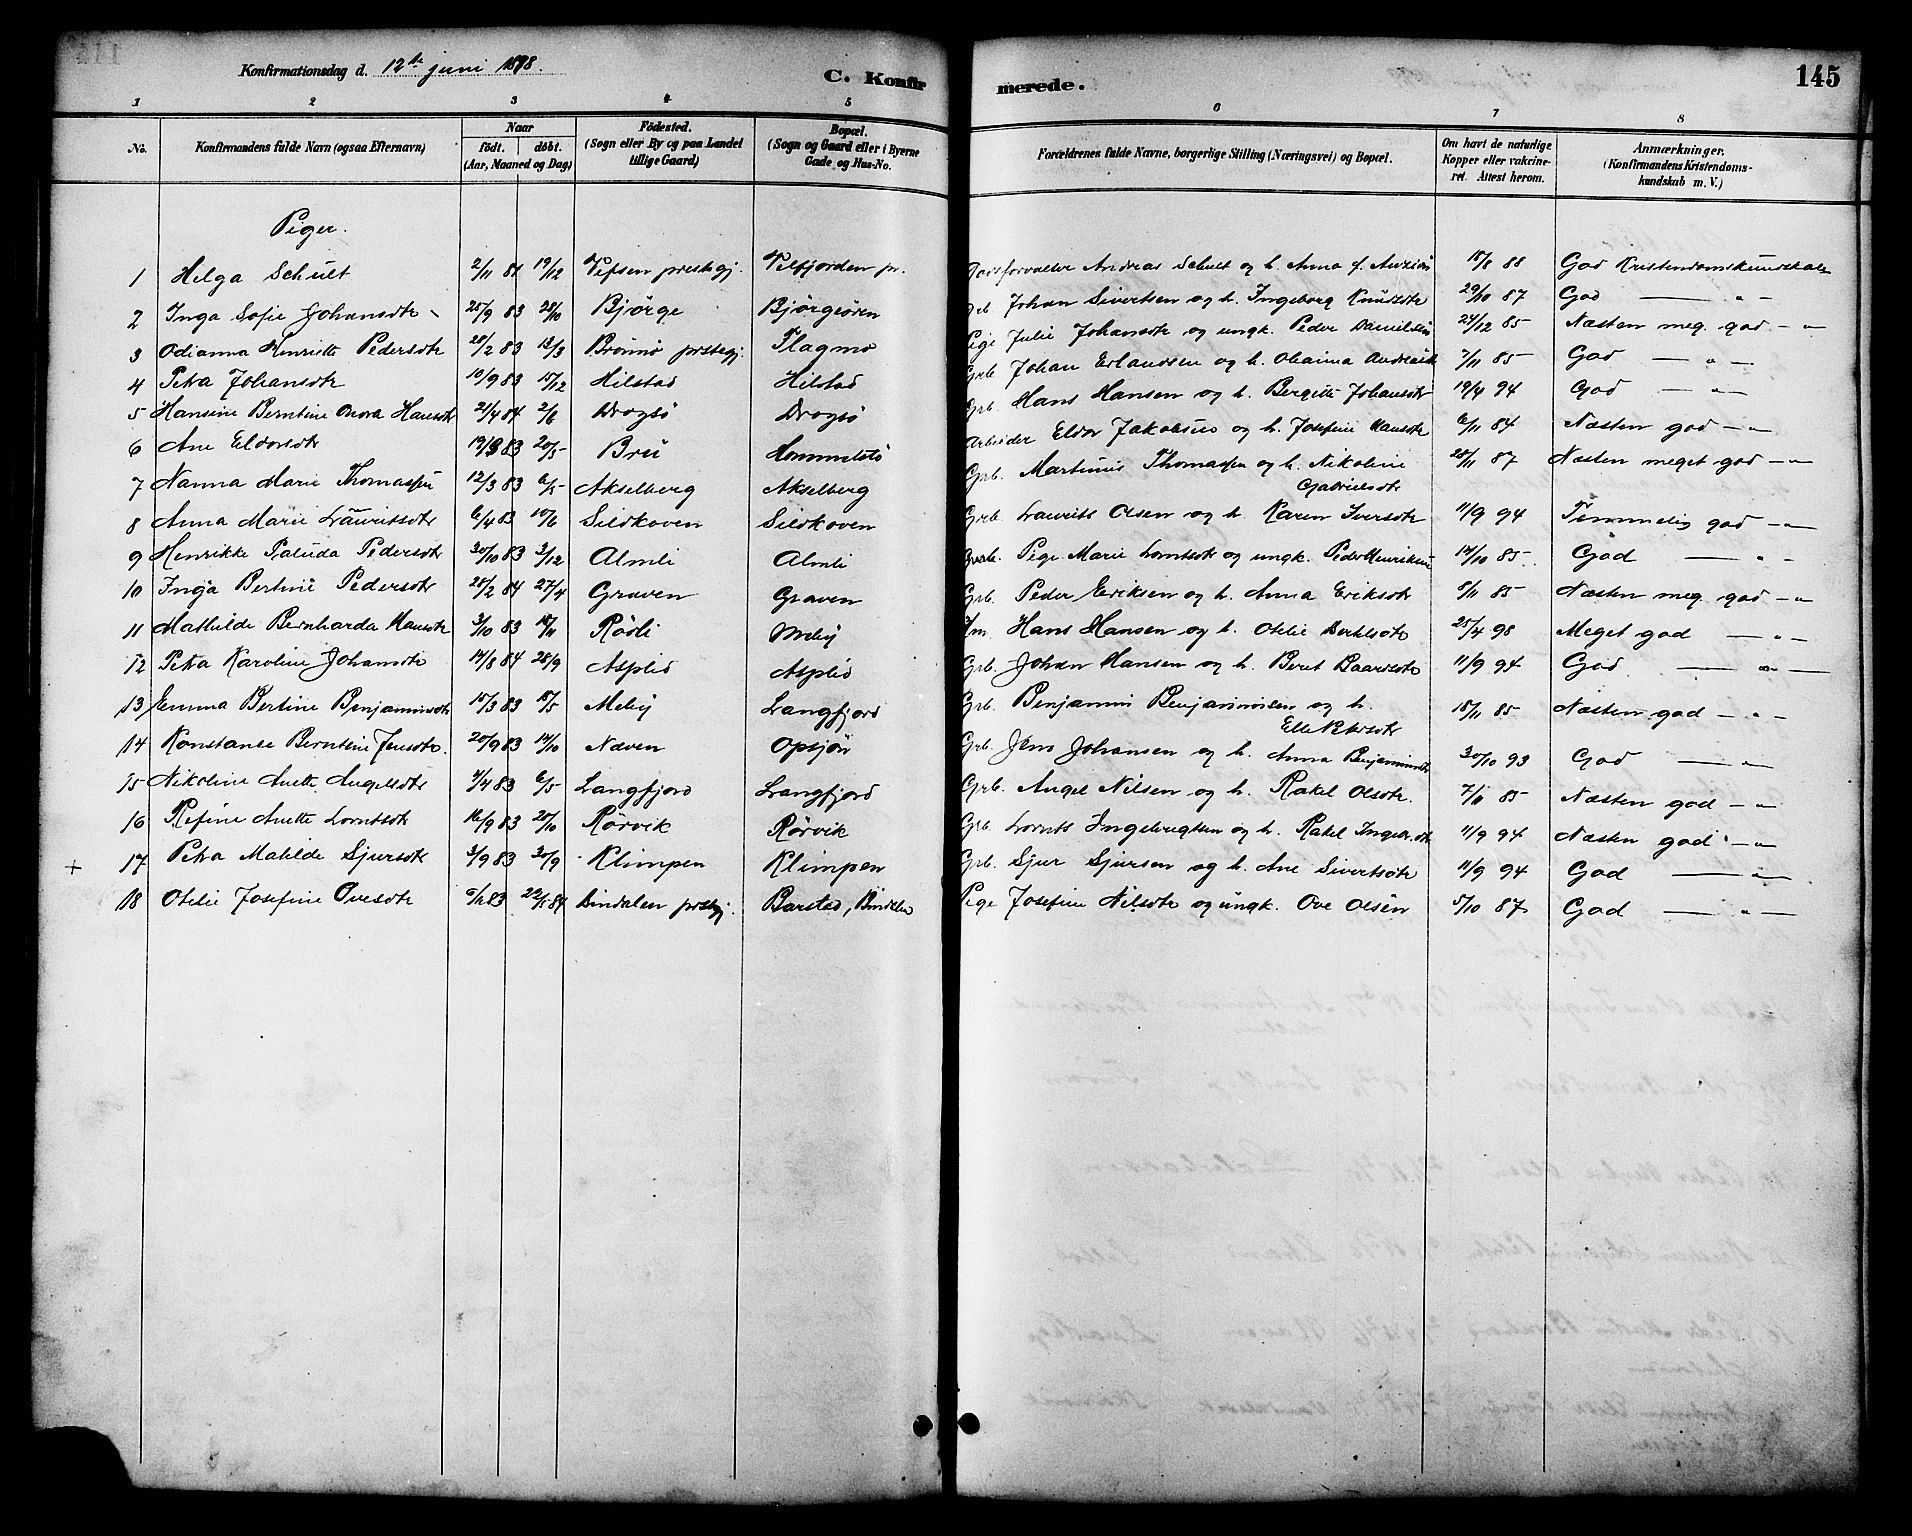 Konfirmationsdag d. 12te juni 1898.
C. Konfirmerede.
145
1 2 3 4 5 6 7 8
No.
Konfirmandens fulde Navn (ogsaa Efternavn)
Naar
födt. döbt.
(Aar, Maaned og Dag)
Födested.
(Sogn eller By og paa Landet tillige Gaard)
Bopæl.
(Sogn og Gaard eller i Byerne Gade og Hus-No.
Forældrenes fulde Navne, borgerlige Stilling (Næringsvei) og Bopæl.
Om havt de naturlige Kopper eller vakcineret. Attest herom.
Anmærkninger.
(Konfirmandens Kristendomskundskab m. V.)
Piger.
1 Helga Schult 2/11 81 19/12 Vefsen prestegj. Velfjorden pr. Andreas Schult og h. Anna f. 18/8 88 God Kristendomskundskab
2 Inga Sofie Johansdtr 25/9 83 28/10 Bjørge Bjørgeøren Johan Sivertsen og h. Ingeborg Knudsdtr 29/10 87 God — " —
3 Odianna Henriette Pedersdtr 28/2 83 13/3 Brønnø prstegj. Flagmo Pige Julie Johansdtr og ungk. Peder Danielsen 24/12 85 Næsten meg. god — "
4 Petra Johansdtr 10/9 83 15/12 Hilstad Hilstad Grb. Johan Erlandsen og h. Andreasdtr 7/11 85 God — " —
5 Hansine Berntine Hansdtr 21/4 84 2/6 Drogsø Drogsø Grb. Hans Hansen og h. Bergitte Johansdtr 19/4 94 God — " —
6 Ane Eldorsdtr 19/3 83 20/5 Bru Hommelstø Arbeider Eldor Jakobsen og h. Josefine Hansdtr 6/11 84 Næsten god — "
7 Nanna Marie Thomassen 12/3 83 6/5 Akselberg Akselberg Grb. Martinus Thomassen og h. Nikoline Gabrielsdtr 28/11 87 Næsten meget god — "
8 Anna Marie Lauritsdtr 6/4 83 10/6 Sildkoven Sildkoven Grb. Laurits Olsen og h. Karen Iversdtr 11/9 94 Temmelig god — "
9 Henrikke Paluda Pedersdtr 30/10 83 3/12 Almli Almli Pige Marie Lorntsdtr og ungk. Peder Henriksen 14/10 85 God — " —
10 Inga Bertine Pedersdtr 28/2 84 27/4 Graven Graven Grb. Peder Eriksen og h. Anna Eriksdtr 8/11 85 Næsten meg. god — "
11 Mathilde Bernharda Hansdtr 3/10 83 18/11 Rødli Meby Im. Hans Hansen og h. Otelie Bertelsdtr 25/4 98 Meget god — " —
12 Petra Karoline Johansdtr 14/8 84 28/9 Asplid Asplid Grb. Johan Hansen og h. Berit Baardsdtr 11/9 94 God — " —
13 Emma Bertine Benjaminsdtr 15/3 83 18/5 Meby Langfjord Grb. Benjamin Benjaminsen og h. Elle Petersdtr 18/11 85 Næsten god — " —
14 Konstanse Berntine Jensdtr. 20/9 83 14/10 Næven Opsjøn Grb. Jens Johansen og h. Anna Benjaminsdtr 30/10 93 God — " —
15 Nikoline Anette Angelsdtr 4/4 83 6/5 Langfjord Langfjord Grb. Angel Nilsen og h. Rakel Olsdtr. 7/11 85 Næsten god — "
16 Refine Anette Lorntsdtr 16/9 83 20/10 Rørvik Rørvik Grb. Lornts Ingebrigtsen og h. Rakel Ingebr.dtr 11/9 94 Næsten god — "
+ 17 Petra Matilde Sjursdtr 3/9 83 30/9 Klimpen Klimpen Grb. Sjur Sjursen og h. Ane Sivertsdtr 11/9 94 God — " —
18 Otelie Josefine Ovesdtr 5/12 83 22/1 84 Bindalen prstegj. Barstad, Bindalen Pige Josefine Nilsdtr og ungk. Ove Olsen 5/10 87 God — " —